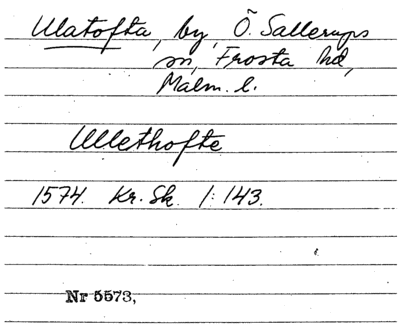 Ulatofta, by, Ö. Sallerups
sn, Frosta hd,
Malm. l.
Ullethofte
1574. Kr. Sk. 1:143.
Nr 5573,